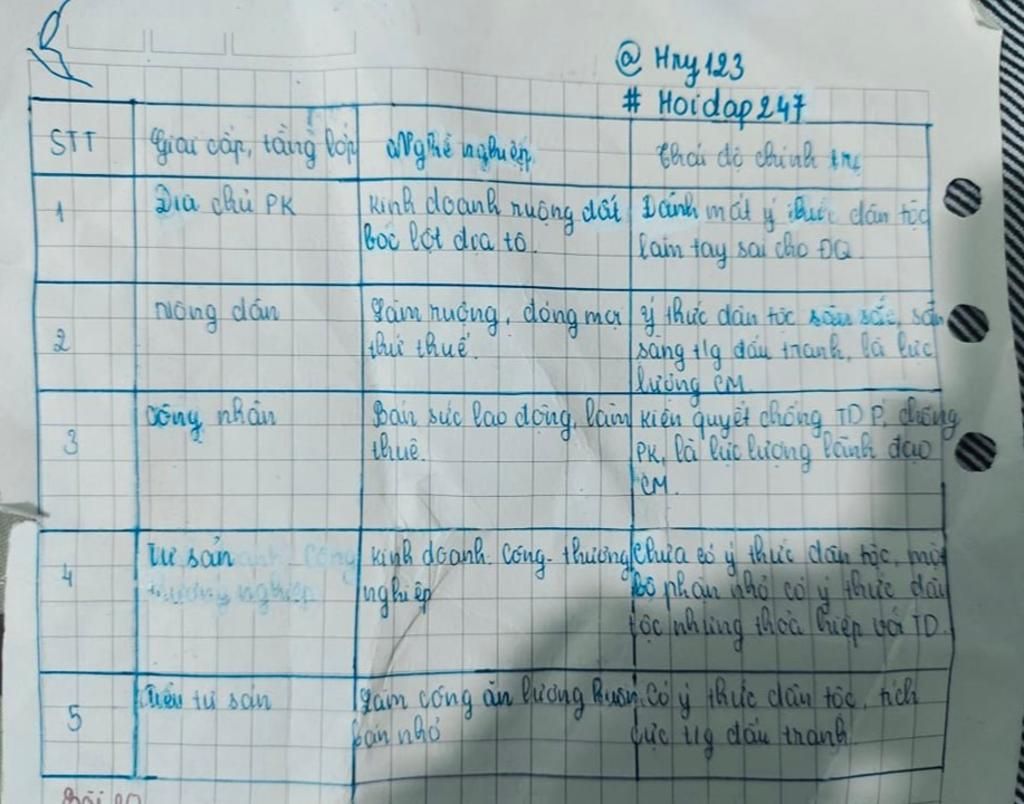 @ Hny123
# Hoidap247
STT
Giai cấp, tầng lớp
Nghề nghiệp
Thái độ chính trị
1
Địa chủ PK
Kinh doanh ruộng đất
bóc lột địa tô.
Đánh mất ý thức dân tộc
làm tay sai cho ĐQ
2
Nông dân
Làm ruộng, đóng mọi
thứ thuế.
Ý thức dân tộc sâu sắc, sẵn
sàng t/g đấu tranh, là lực
lượng CM
3
Công nhân
Bán sức lao động, làm
thuê.
Kiên quyết chống TD P, chống
PK, là lực lượng lãnh đạo
CM.
4
Tư sản
Kinh doanh công-thương
nghiệp
Chưa có ý thức dân tộc, một
bộ phận nhỏ có ý thức dân
tộc nhưng thoả hiệp với TD.
5
Tiểu tư sản
Làm công ăn lương buôn
bán nhỏ
Có ý thức dân tộc, tích
cực t/g đấu tranh